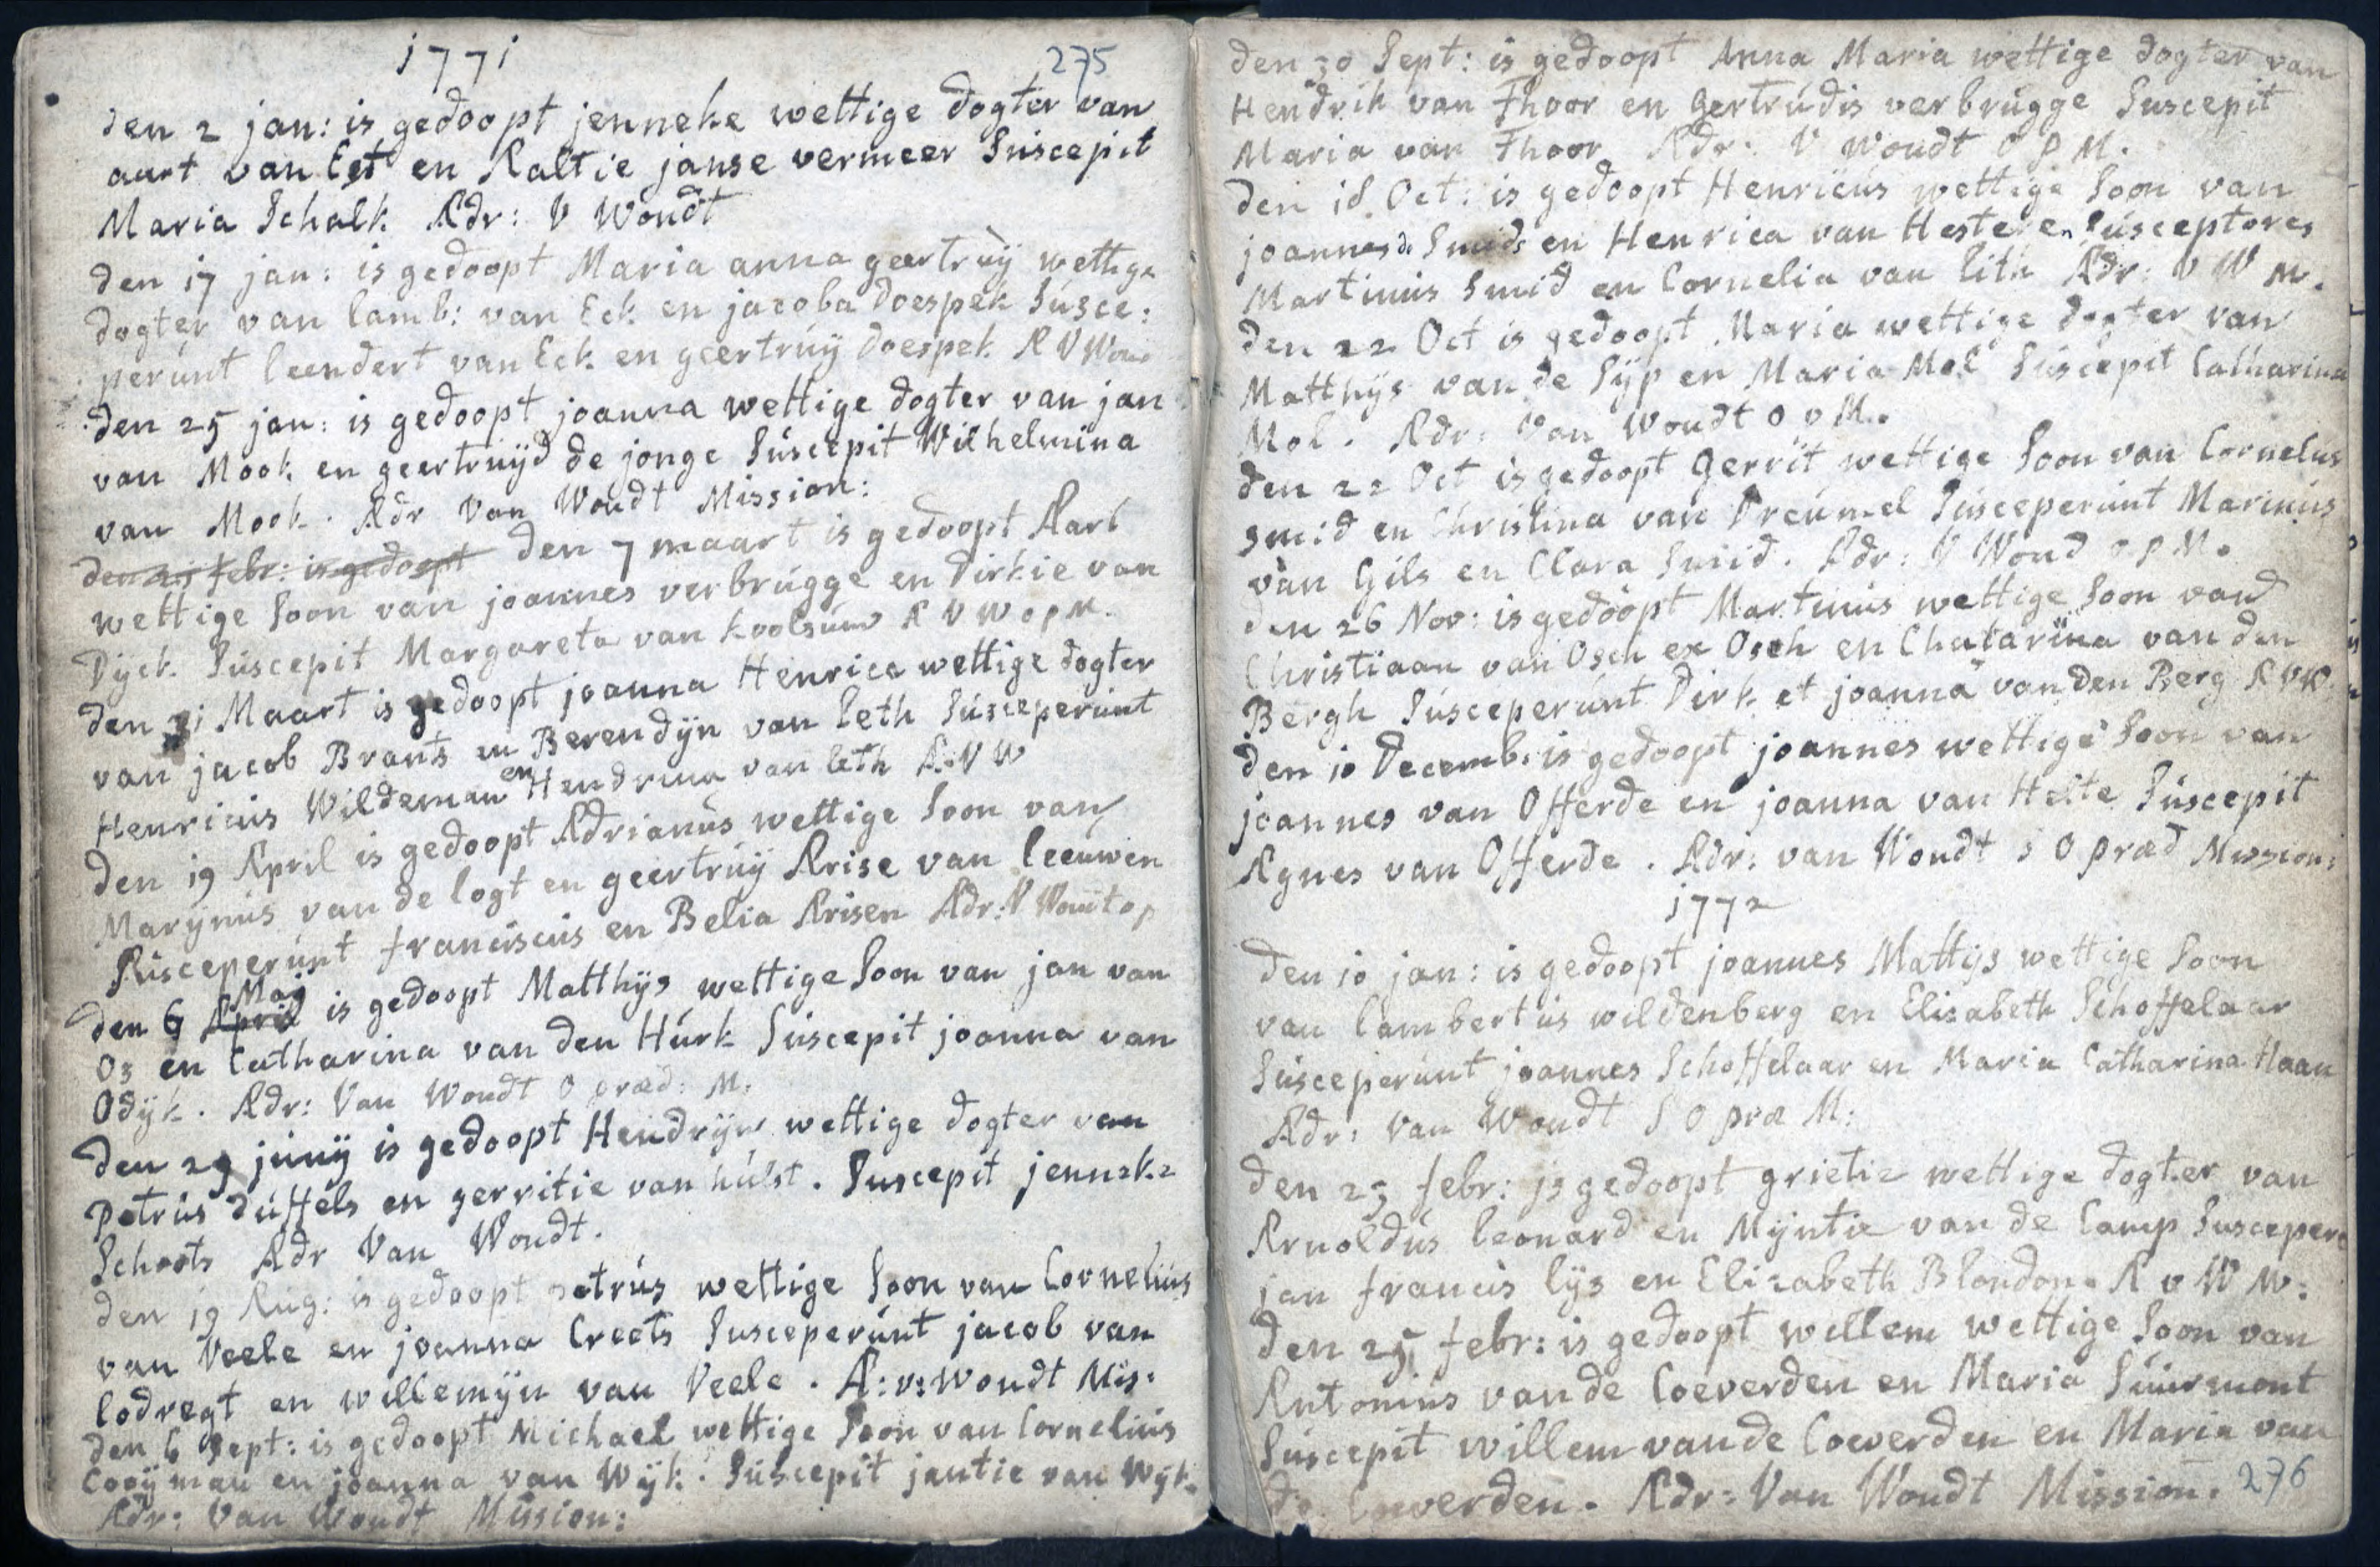 1771
275
den 2 jan: is gedoopt jenneke wettige dogter van
aart van Est en Aaltie janse vermeer Suscepit
Maria Schalk Adr: V Woudt
den 17 jan: is gedoopt Maria anna geertruÿ wettige
dogter van lamb: van Eck en jacoba doespek Susce:
perunt leendert van Eck en geertruÿ doespek A V Wou
den 25 jan: is gedoopt joanna wettige dogter van jan
van Mook en geertruÿd de jonge Suscepit Wilhelmina
van Mook. Adr Van Woudt Mission:
den 25 febr: is gedoopt den 7 maart is gedoopt Aart
wettige Soon van joannes verbrugge en dirkie van
Dÿck Suscepit Margareta van koolsum A V W o p M.
den 31 Maart is gedoopt joanna Henrica wettige dogter
van jacob Brants en Berendÿn van leth Susceperunt
Henricus Wildeman en Hendrina van leth A: V W
den 19 April is gedoopt Adrianus wettige Soon van
Marÿnus van de logt en geertruÿ Arise van leeuwen
Susceperunt franciscus en Belia Arisen Adr: V Woudt o p
den 6 April Maj is gedoopt Matthÿs wettige Soon van jan van
Os en Catharina van den Hurk Suscepit joanna van
Odÿk. Adr: Van Woudt O præd: M.
den 29 junÿ is gedoopt Hendrÿn wettige dogter van
Petrus duffels en gerritie van hulst. Suscepit jenneke
Schoots Adr Van Woudt.
den 19 Aug: is gedoopt petrus wettige Soon van Cornelius
van Veele en joanna Creets Susceperunt jacob van
lodregt en willemÿn van Veele. A: v: Woudt Mis:
den 6 Sept: is gedoopt Michael wettige Soon van Cornelius
Cooÿman en joanna van Wÿk. Suscepit jantie van Wÿk.
Adr: Van Woudt Mission:
den 30 Sept: is gedoopt Anna Maria wettige dogter van
Hendrik van Thoor en Gertrudis verbrugge Suscepit
Maria van Thoor Adr: V Woudt O P M.
den 18 Oct: is gedoopt Henricus wettige Soon van
joannes de Smids en Henrica van Hesteren Susceptores
Martinus Smid en Cornelia van lith Adr: V W M.
den 22 Oct is gedoopt Maria wettige dogter van
Matthÿs van de Sÿp en Maria Mol Suscepit Catharina
Mol. Adr: Van Woudt O P M.
den 22 Oct is gedoopt Gerrit wettige Soon van Cornelus
Smid en Christina van Dreumel Susceperunt Marinus
van Gils en Clara Smid. Adr: V Woud O P M.
den 26 Nov: is gedoopt Martinus wettige Soon van
Christiaan van Osch ex Osch en Chatarina van den
Bergh Susceperunt Dirk et joanna van den Berg A V W
den 10 Decemb: is gedoopt joannes wettige Soon van
joannes van Offerde en joanna van Helte Suscepit
Agnes van Offerde. Adr: van Woudt S O præd Mission:
1772
den 10 jan: is gedoopt joannes Mattÿs wettige Soon
van lambertus wildenberg en Elisabeth Schoffelaar
Susceperunt joannes Schoffelaar en Maria Catharina Haan
Adr: Van Woudt S O præ M:
den 25 febr: js gedoopt grietie wettige dogter van
Arnoldus leonard en Mÿntie van de Camp Suscepere
jan francis lÿs en Elizabeth Blondon. A v W M:
den 25 febr: is gedoopt willem wettige Soon van
Antonius van de Coeverden en Maria Suurmont
Suscepit willem van de Coeverden en Maria van
de Coeverden. Adr: Van Woudt Mission. 276